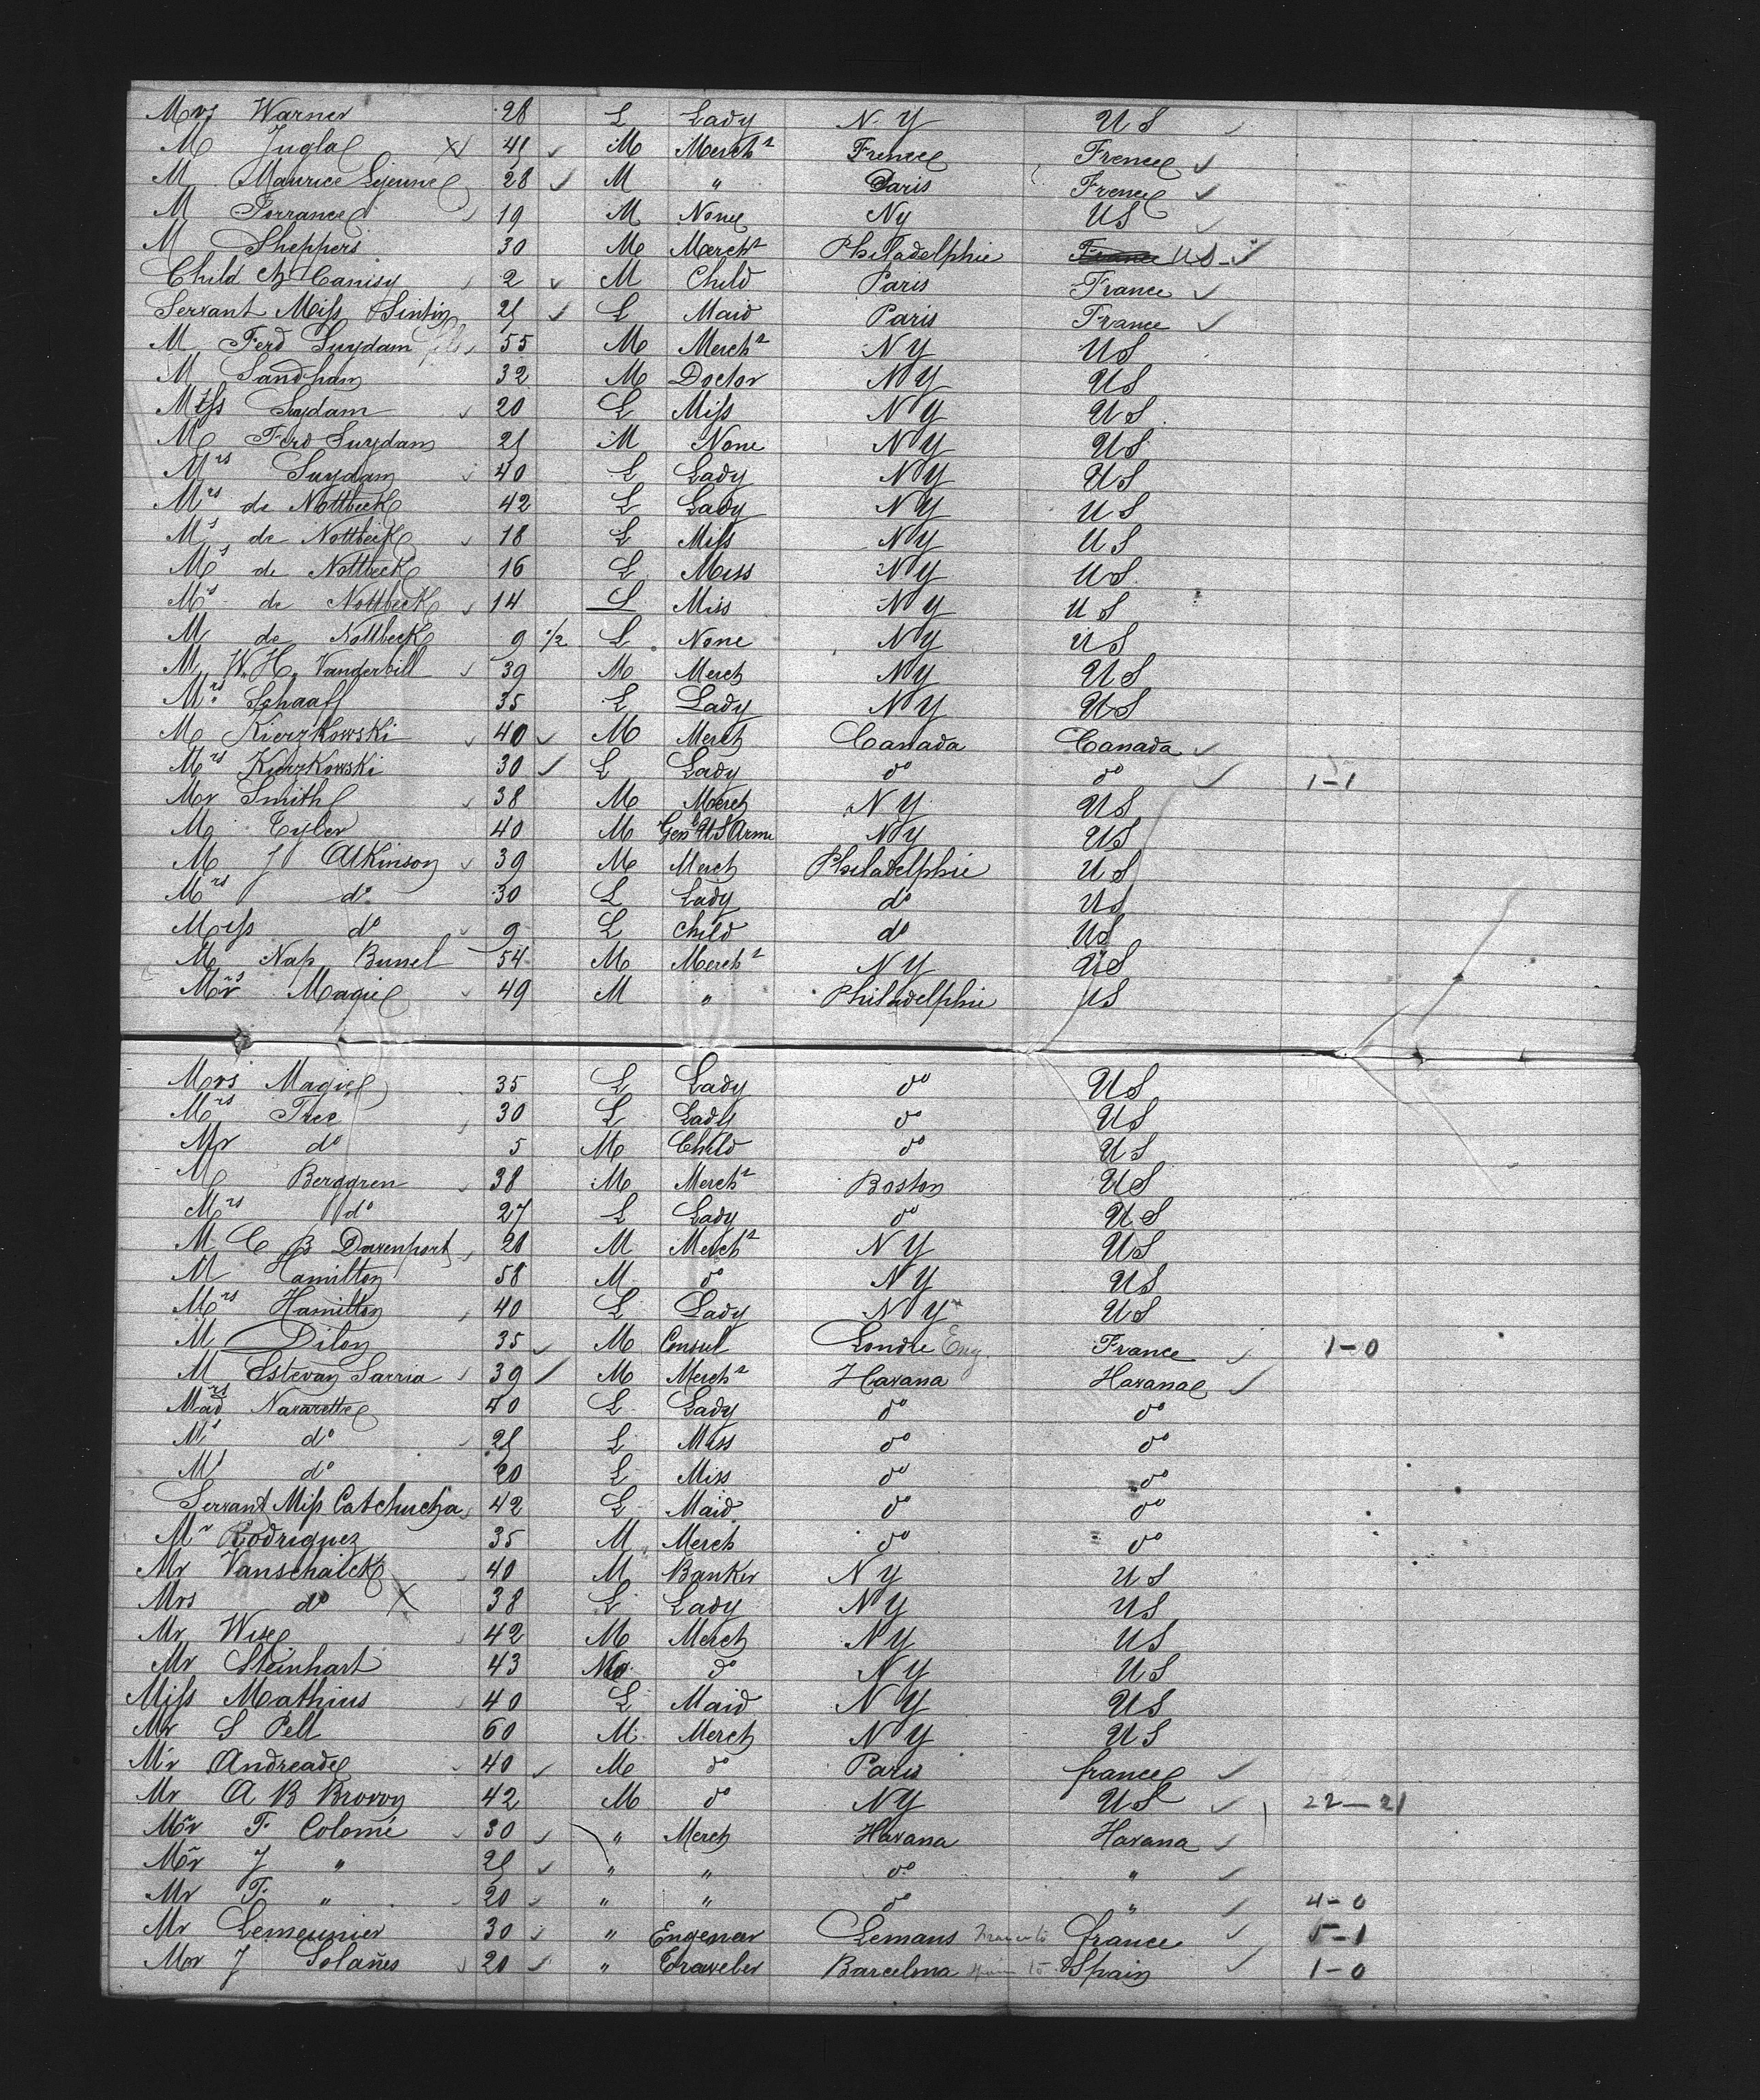 Mrs Warner 28 L Lady N Y US
M Juglas X 41 M Mercht France France
M Maurice Lejeune 28 M " Paris France
M Torrance 19 M None Ny US
M Sheppers 30 M Mercht Philadelphie France US
Child Ch Canisy 2 M Child Paris France
Servant Miss Sintin 21 L Maid Paris France
M Ferd Suydam 55 M Mercht NY US
M Sandham 32 M Doctor NY US
Miss Suydam 20 L Miss NY US
M Ferd Suydam 21 M None NY US
Mrs Suydam 40 L Lady NY US
Mrs de Nottbeck 42 L Lady NY US
Ms de Nottbeck 18 L Miss NY US
Ms de Nottbeck 16 L Miss NY US
Ms de Nottbeck 14 L Miss NY US
M de Nottbeck 9 1/2 L None NY US
M W. H. Vanderbill 39 M Merch NY US
Mrs Schaaff 35 L Lady NY US
M Kierzkowski 40 M Merch Canada Canada
Mrs Kierzkowski 30 L Lady do do 1-1
Mr Smith 38 M Merch NY US
M Tyler 40 M Genl US Army NY US
M J Atkinson 39 M Merch Philadelphie US
Mrs do 30 L Lady do US
Miss do 9 L Child do US
M Nap Bunel 54 M Mercht NY US
Mr Magie 49 M " Philadelphie US
Mrs Magie 35 L Lady do US
Mrs Tree 30 L Lady do US
Mr do 5 M Child do US
M Berggren 38 M Mercht Boston US
Mrs do 27 L Lady do US
M C B Davenport 28 M Mercht NY US
M Hamilton 58 M do NY US
Mrs Hamilton 40 L Lady NY US
M Dilon 35 M Consul Londre Eng. France 1-0
M Estevan Sarria 39 M Mercht Havana Havana
Mad Navarette 40 L Lady do do
Ms do 21 L Miss do do
Ms do 20 L Miss do do
Servant Miss Catchucha 42 L Maid do do
Mr Rodriguez 35 M Merch do do
Mr Vanschaick 40 M Banker NY US
Mrs do X 38 L Lady NY US
Mr Wise 42 M Merch NY US
Mr Steinhart 43 M do NY US
Miss Mathius 40 L Maid NY US
Mr S Pell 60 M Merch NY US
Mr Andreade 40 M do Paris france
Mr A B Brown 42 M do NY US 22-21
Mr F. Colomé 30 " Merch Havana Havana
Mr J " 21 " " do "
Mr F. " 20 " " do " 4-0
Mr Lemeunier 30 " Engenear Lemans france 5-1
Mr J Solanes 20 " Traveler Barcelona Spain 1-0